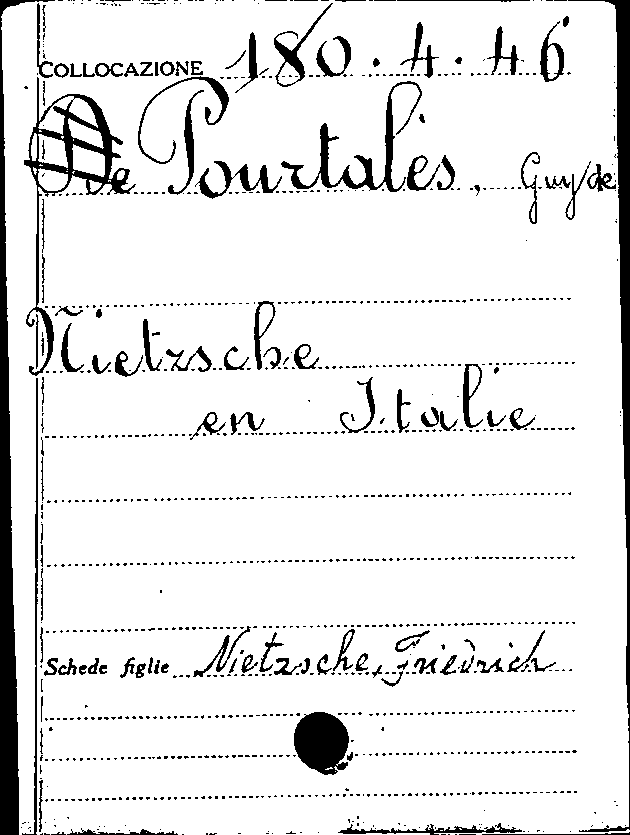 COLLOCAZIONE 180.4.46
De Pourtalès, Guy de
Nietzsche
en Italie
Schede figlie Nietzsche, Friedrich